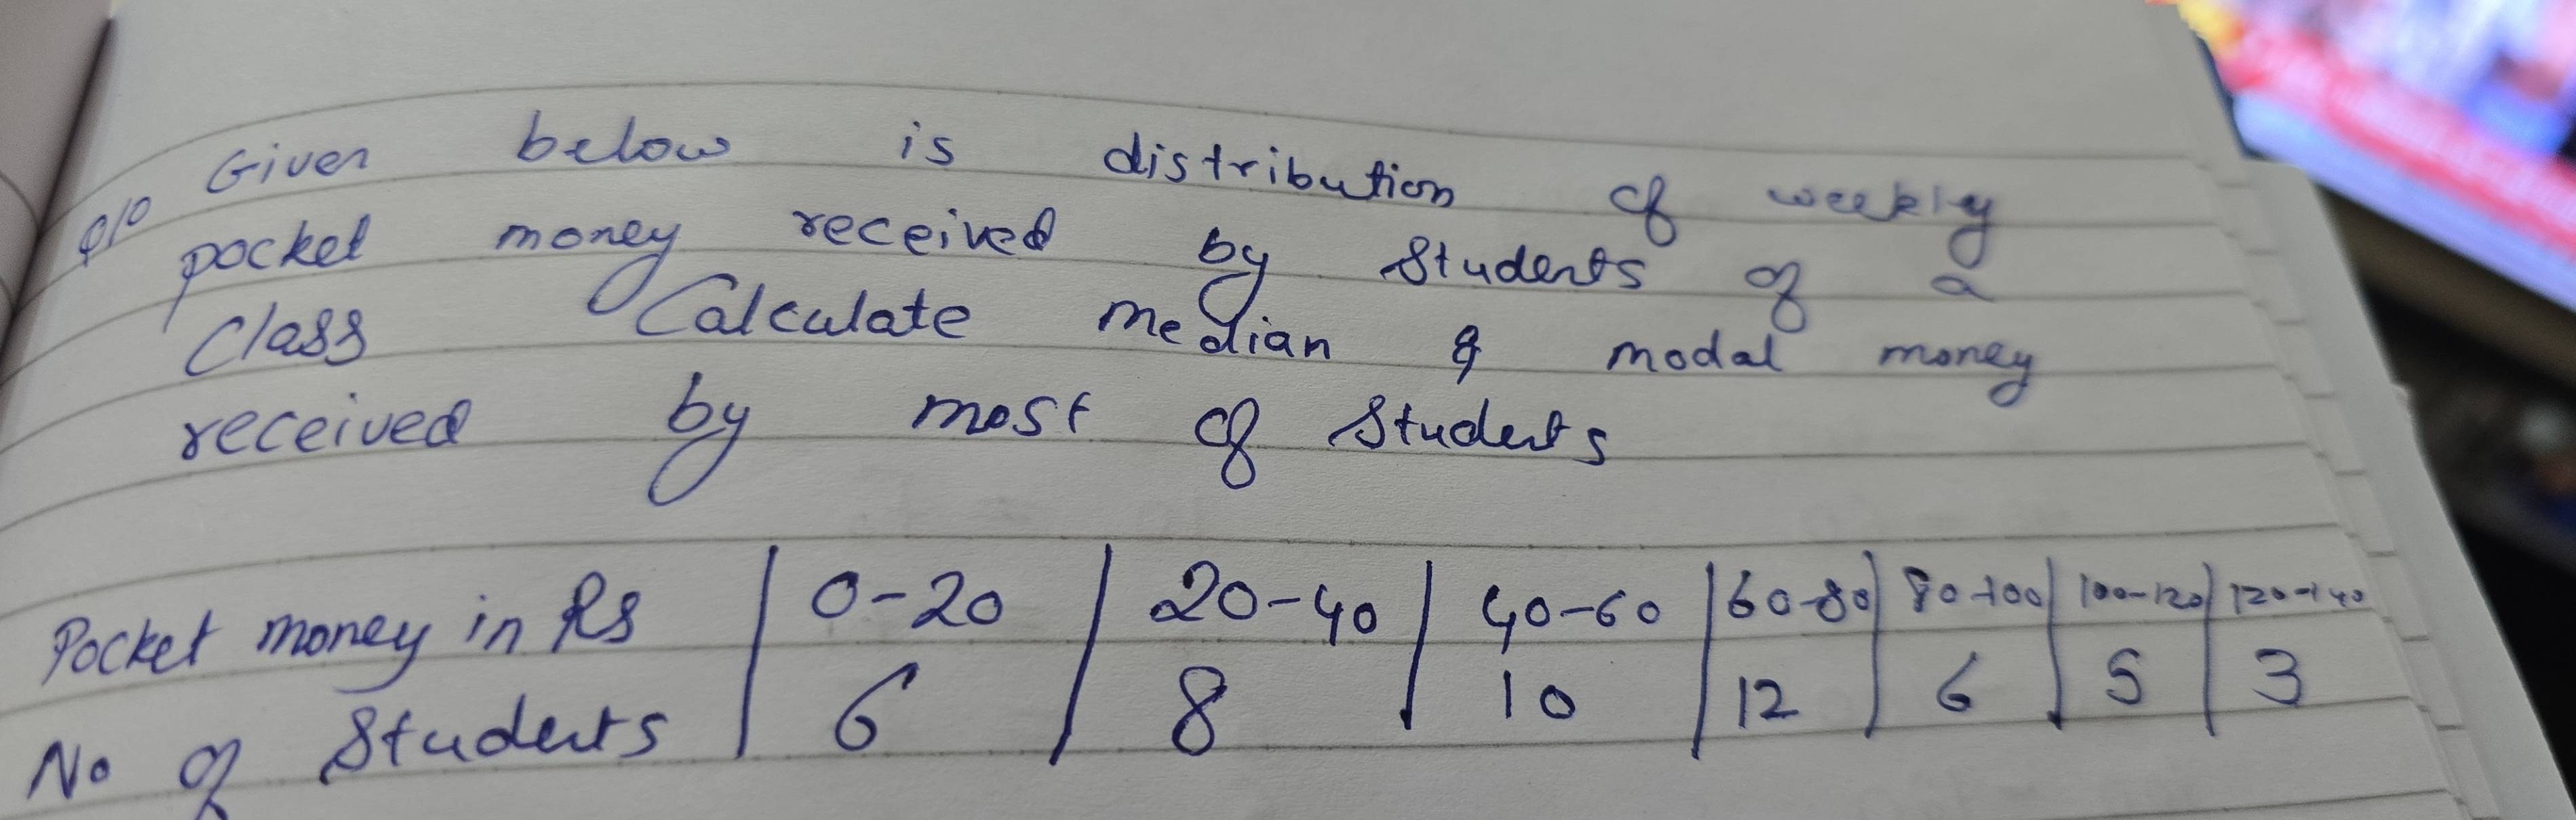 Q10 Given below is distribution of weekly
pocket money received by Students of a
Class Calculate median & modal money
received by most of Students
Pocket money in Rs | 0-20 | 20-40 | 40-60 | 60-80 | 80-100 | 100-120 | 120-140
No of Students | 6 | 8 | 10 | 12 | 6 | 5 | 3